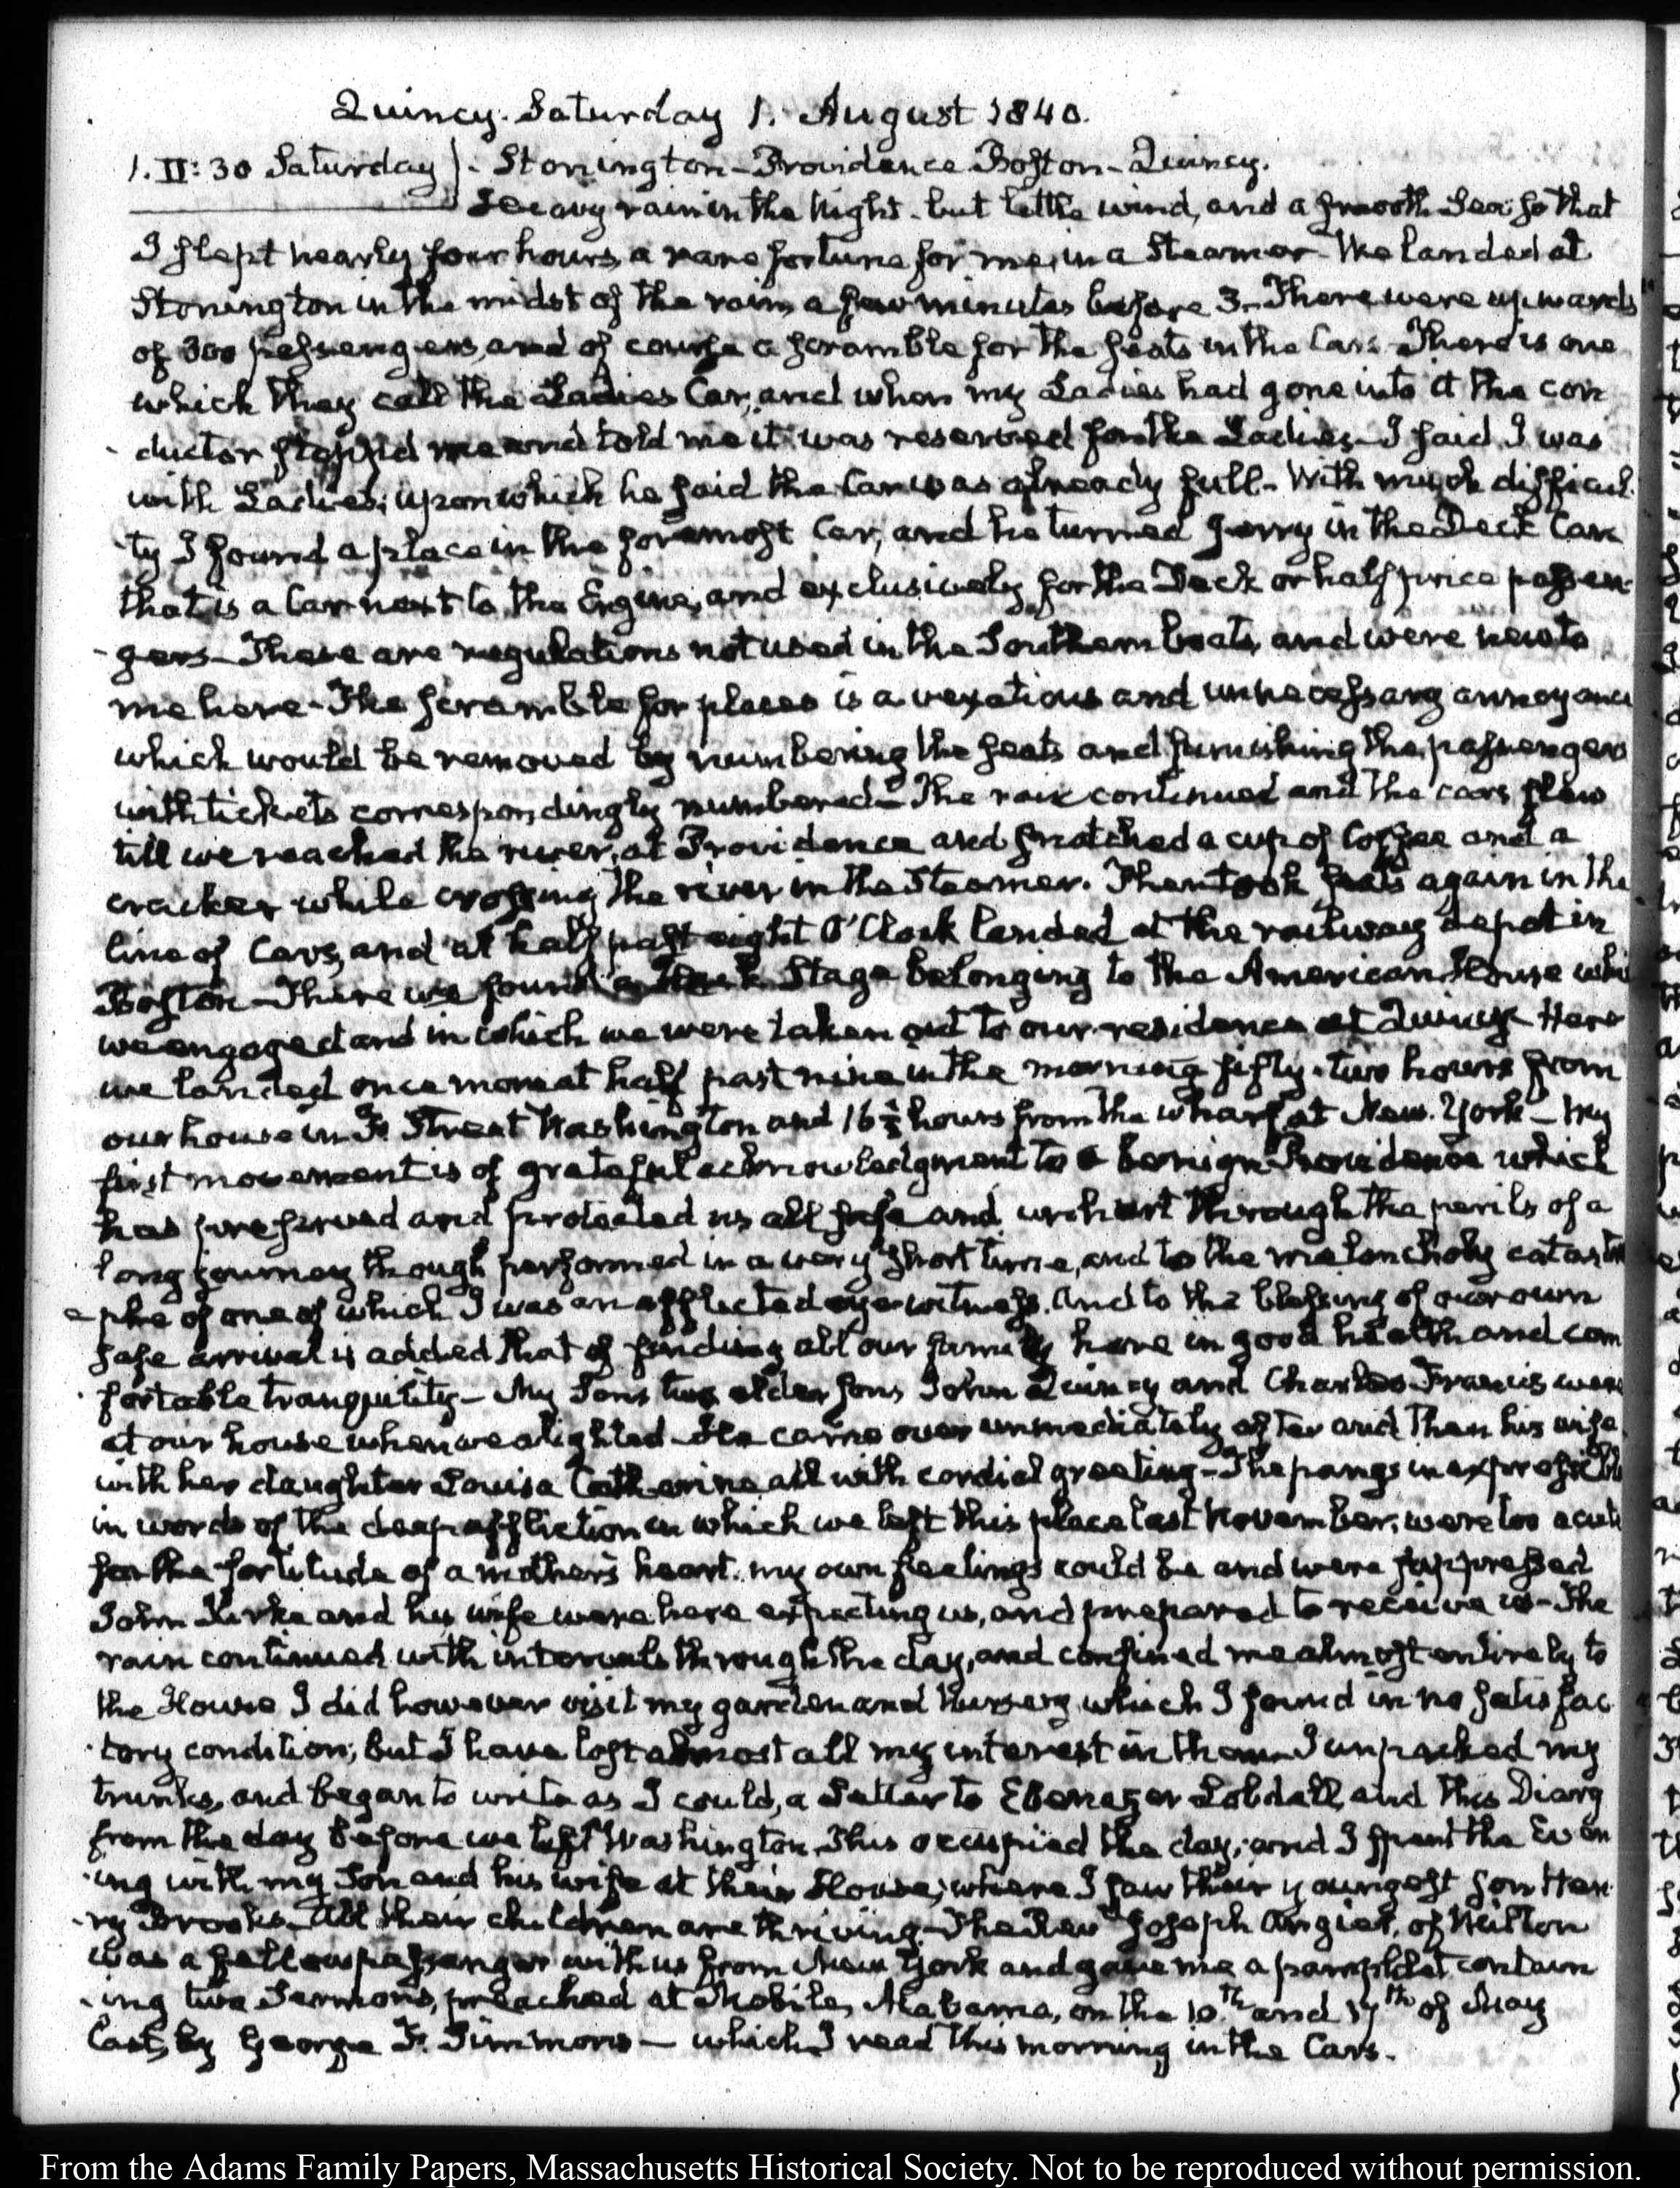 Quincy. Saturday 1. August 1840.
1. II: 30 Saturday). Stonington–Providence Boston–Quincy.
Heavy rain in the Night. but little wind, and a smooth Sea so that
I slept nearly four hours, a rare fortune for me, in a Steamer – We landed at
Stonington in the midst of the rain, a few minutes before 3. – There were upwards
of 300 passengers, and of course a scramble for the seats in the Cars – There is one
which they call the Ladies Car, and when my Ladies had gone into it the con
ductor stopp'd me and told me it was reserved for the Ladies – I said I was
with Ladies; upon which he said the Car was already full – With much difficul
ty I found a place in the foremost Car, and he turned Jerry in the Deck Car
that is a Car next to the Engine, and exclusively for the Deck or half price passen
gers – These are regulations not used in the Southern boats, and were new to
me here – The scramble for places is a vexatious and unnecessary annoyance
which would be removed by numbering the seats and furnishing the passengers
with tickets correspondingly numbered – The rain continued and the cars flew
till we reached the river, at Providence and snatched a cup of Coffee and a
cracker while crossing the river in the Steamer. Then took seats again in the
line of Cars, and at half past eight O'Clock landed at the railway depot in
Boston – There we found a Stage belonging to the American House which
we engaged and in which we were taken out to our residence at Quincy Here
we landed once more at half past nine in the morning fifty-two hours from
our house in F. Street Washington and 16½ hours from the wharf at New-York – My
first movement is of grateful acknowledgment to a benign Providence which
has preserved and protected us all safe and unhurt through the perils of a
long journey though performed in a very short time, and to the melancholy catastro
phe of one of which I was an afflicted eye-witness. And to the blessing of our own
safe arrival is added that of finding all our family here in good health and com
fortable tranquility – My Sons two elder sons John Quincy and Charles Francis were
at our house when we alighted – He came over immediately after and then his wife
with her daughter Louisa Catherine all with cordial greeting – The pangs inexpressible
in words of the deep affliction in which we left this place last November, were too acute
for the fortitude of a mother's heart. my own feelings could be and were suppressed
John Kirke and his wife were here expecting us, and prepared to receive us – The
rain continued with intervals through the day, and confined me almost entirely to
the House I did however visit my garden and Nursery which I found in no satisfac
tory condition; but I have lost almost all my interest in them – I unpacked my
trunks, and began to write as I could, a Letter to Ebenezer Lobdell, and this Diary
from the day before we left Washington. This occupied the day; and I spent the Even
ing with my Son and his wife at their House; where I saw their youngest son Hen
ry Brooks – All their children are thriving. – The Revd. Joseph Angier, of Milton
was a fellow passenger with us from New York and gave me a pamphlet contain
ing two Sermons, preached at Mobile, Alabama, on the 10.th and 17th of May
last, by George F. Simmons – which I read this morning in the Cars.
From the Adams Family Papers, Massachusetts Historical Society. Not to be reproduced without permission.